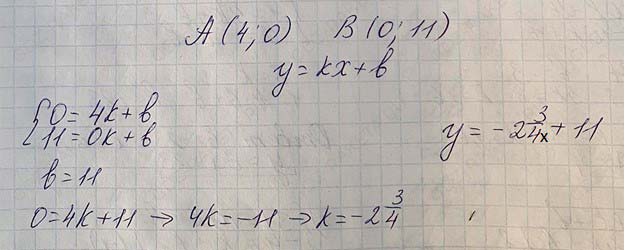 A (4; 0) B (0; 11)
y = kx + b
{ 0 = 4k + b
11 = 0k + b
y = -2 3/4x + 11
b = 11
0 = 4k + 11 → 4k = -11 → k = -2 3/4